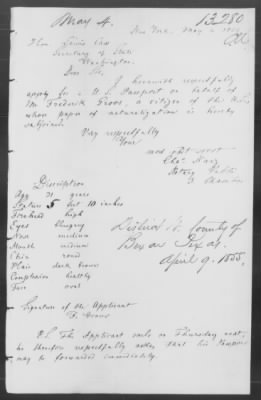 May 4. 13,280
New York May
Hon. Lewis Cass
Secretary of State
Washington.
Dear Sir,
I herewith respectfully
apply for a U.S. Passport on behalf of
Mr. Frederik Groos, a citizen of the U.S.,
whose paper of naturalization is hereby
Very respectfully
Your
most obt servt
Notary Public
Description
Age 31 years
Stature 5 feet 10 inches
Forehead high
Eyes
Nose medium
Mouth medium
Chin round
Hair dark brown
Complexion healthy
Face oval
District Ct. County of
Bexar Texas.
April 9. 1855.
Signature of the Applicant
F. Groos
P.S. The Applicant sails on Thursday next,
he therefore respectfully asks that his Passport
may be forwarded immediately.